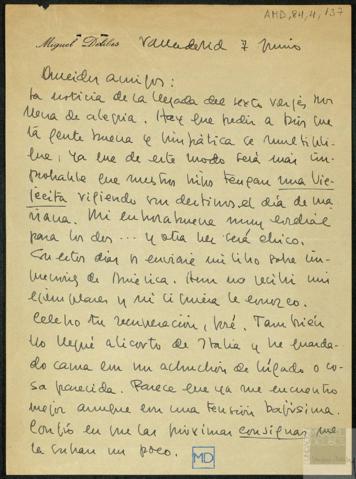 AMD, 84, 4, 137
Miguel Delibes
Valladolid 7 Junio
Queridos amigos:
La noticia de la llegada del sexto vergés nos
llena de alegría. Hay que pedir a Dios que
la gente buena y simpática se multipli-
que, ya que de este modo será más im-
probable que nuestros hijos tengan una Vie-
jecita rigiendo sus destinos el día de ma-
ñana. Mi enhorabuena muy cordial
para los dos... y otra vez será chico.
Cualquier día os enviaré mi libro sobre im-
presiones de América. Aún no recibí mis
ejemplares y ni siquiera le conozco.
Celebro tu recuperación, José. También
yo llegué alicorto de Italia y he guarda-
do cama con un achuchón de hígado o co-
sa parecida. Parece que ya me encuentro
mejor aunque con una tensión bajísima.
Confío en que las próximas consignas me
la suban un poco.
MD